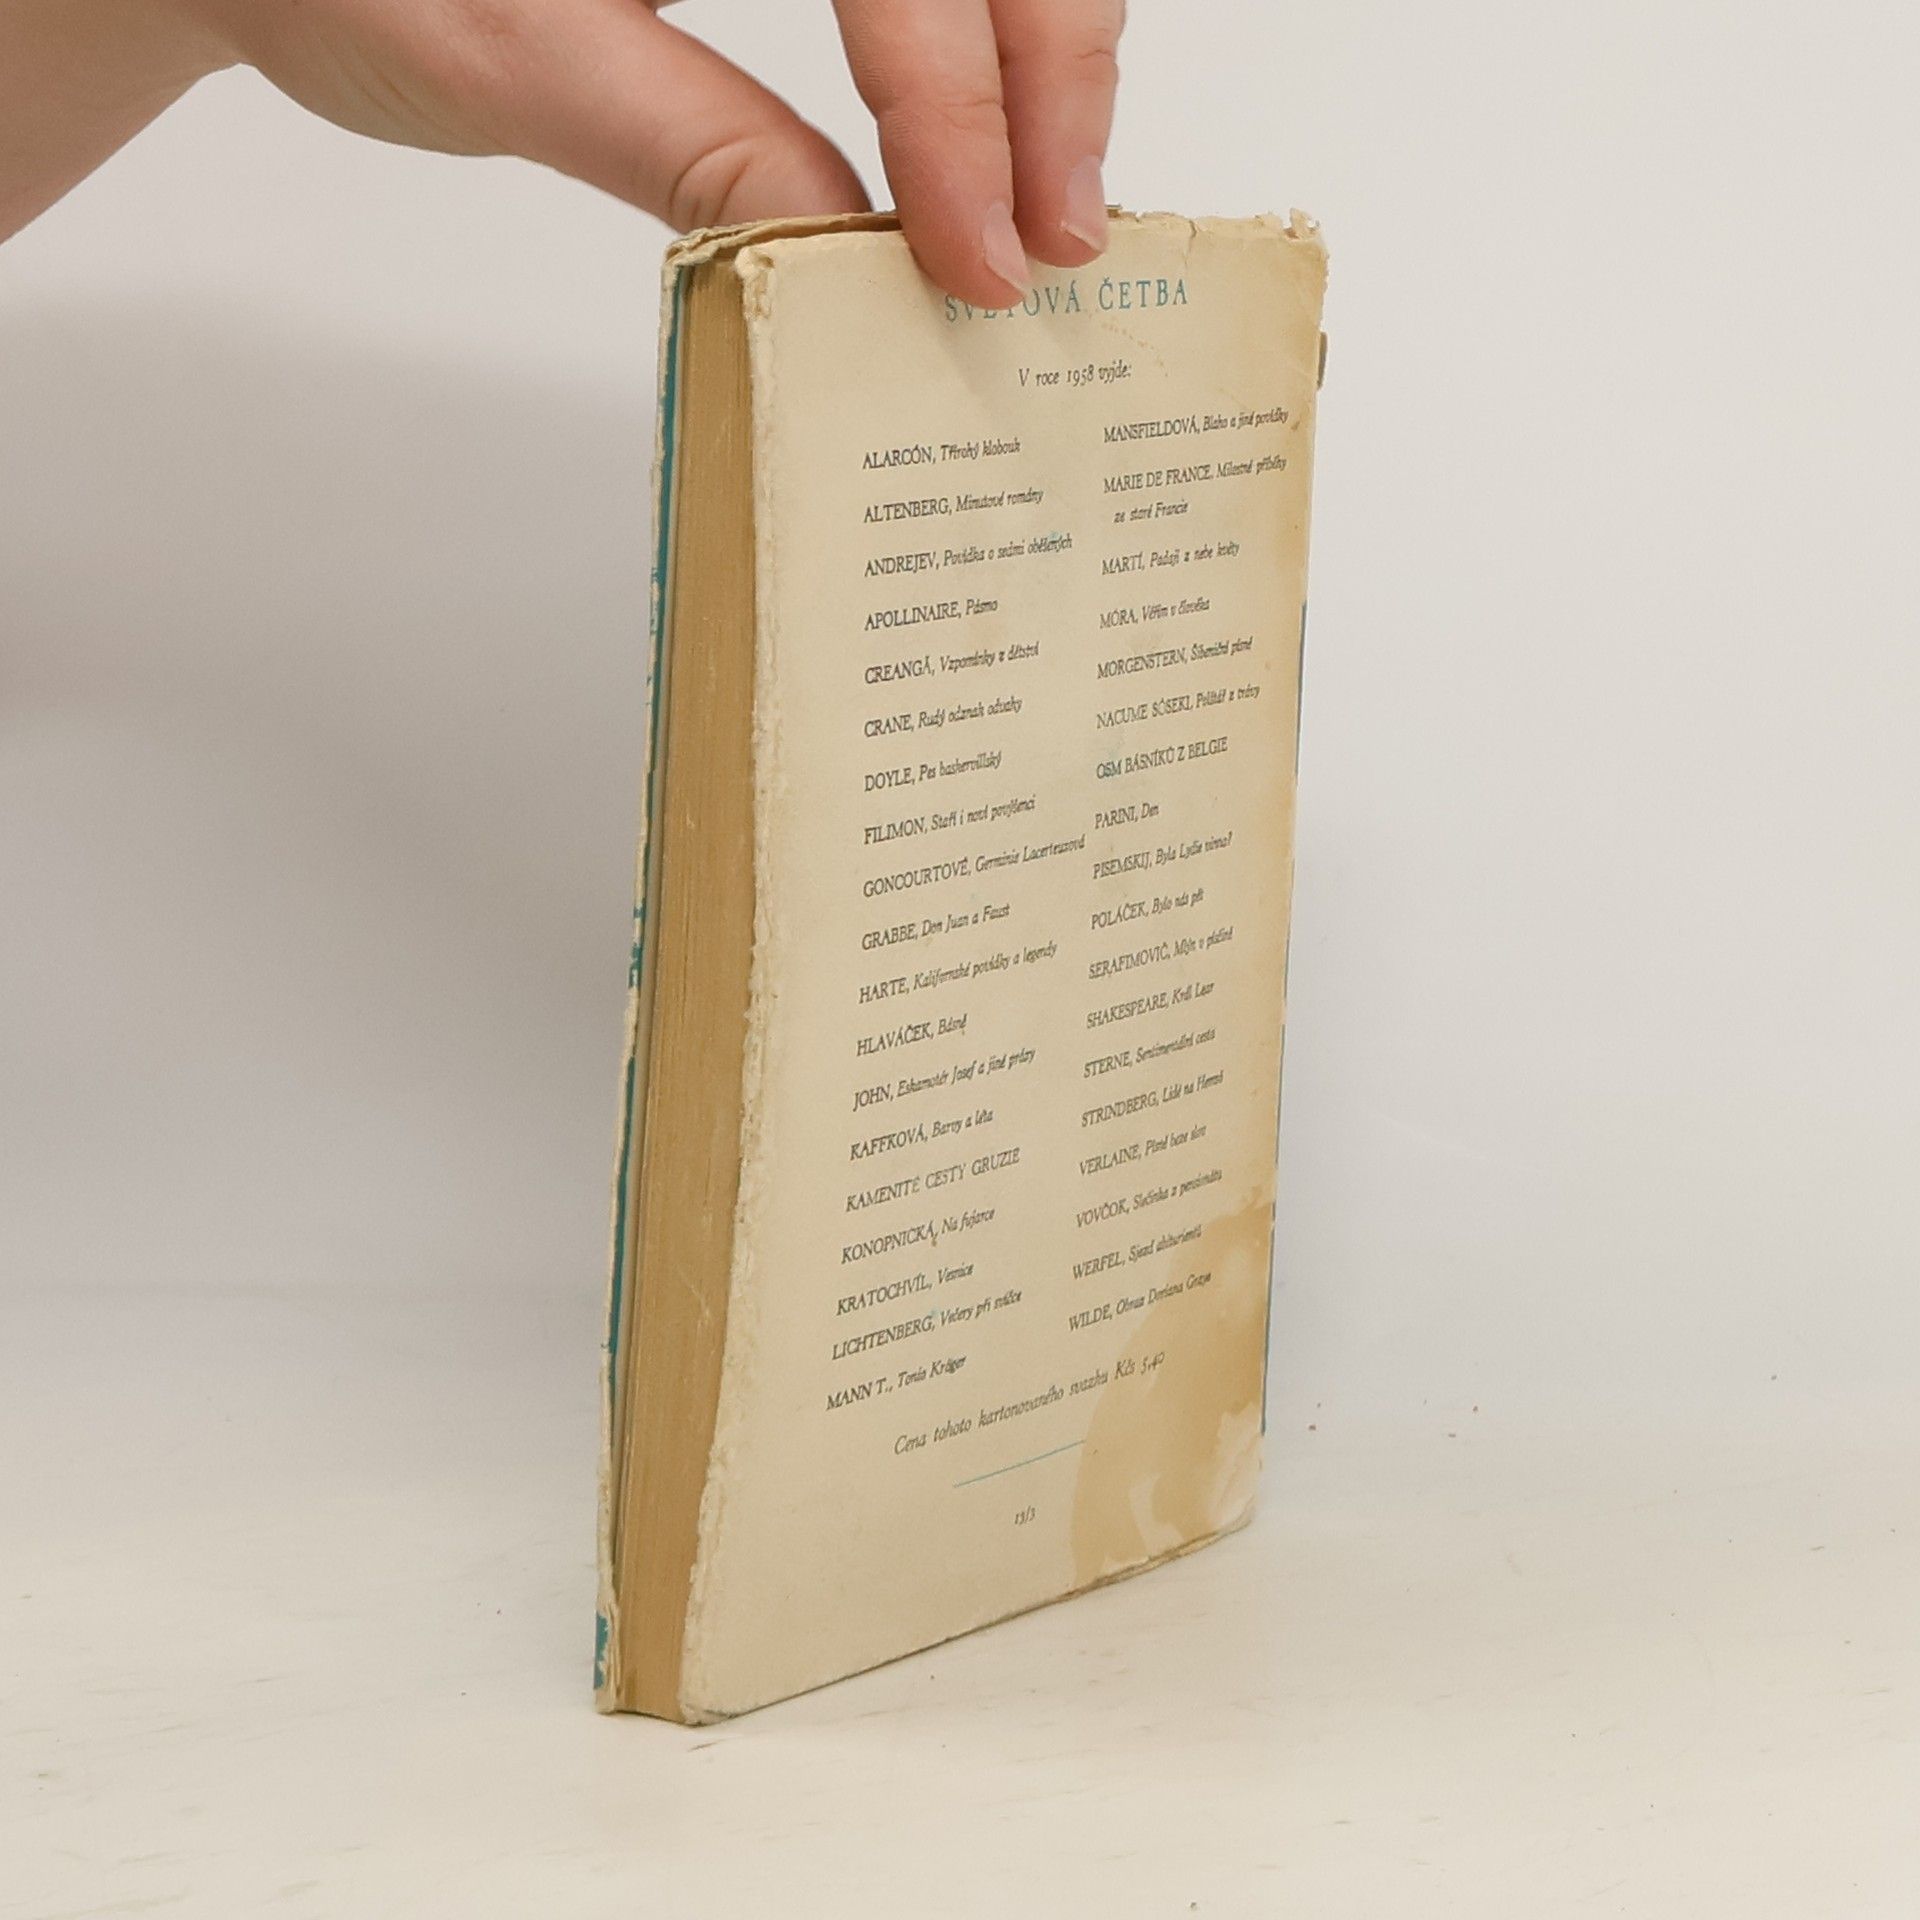 SVĚTOVÁ ČETBA
V roce 1958 vyjde:
ALARCÓN, Třírohý klobouk
ALTENBERG, Minutové romány
ANDREJEV, Povídka o sedmi oběšených
APOLLINAIRE, Pásmo
CREANGĂ, Vzpomínky z dětství
CRANE, Rudý odznak odvahy
DOYLE, Pes baskervillský
FILIMON, Staří i noví povýšenci
GONCOURTOVÉ, Germinie Lacerteuxová
GRABBE, Don Juan a Faust
HARTE, Kalifornské povídky a legendy
HLAVÁČEK, Básně
JOHN, Eskamotér Josef a jiné prózy
KAFFKOVÁ, Barvy a léta
KAMENITÉ CESTY GRUZIE
KONOPNICKÁ, Na fujarce
KRATOCHVÍL, Vesnice
LICHTENBERG, Večery při svíčce
MANN T., Tonio Kröger
MANSFIELDOVÁ, Blaho a jiné povídky
MARIE DE FRANCE, Milostné příběhy
ze staré Francie
MARTÍ, Padají z nebe květy
MÓRA, Věřím v člověka
MORGENSTERN, Šibeniční písně
NACUME SÓSEKI, Polštář z trávy
OSM BÁSNÍKŮ Z BELGIE
PARINI, Den
PISEMSKIJ, Byla Lydie vinna?
POLÁČEK, Bylo nás pět
SERAFIMOVIČ, Mlýn v písčině
SHAKESPEARE, Král Lear
STERNE, Sentimentální cesta
STRINDBERG, Lidé na Hemsö
VERLAINE, Písně beze slov
VOVČOK, Slečinka z pensionátu
WERFEL, Sjezd abiturientů
WILDE, Obraz Doriana Graye
Cena tohoto kartonovaného svazku Kčs 5,40
13/3